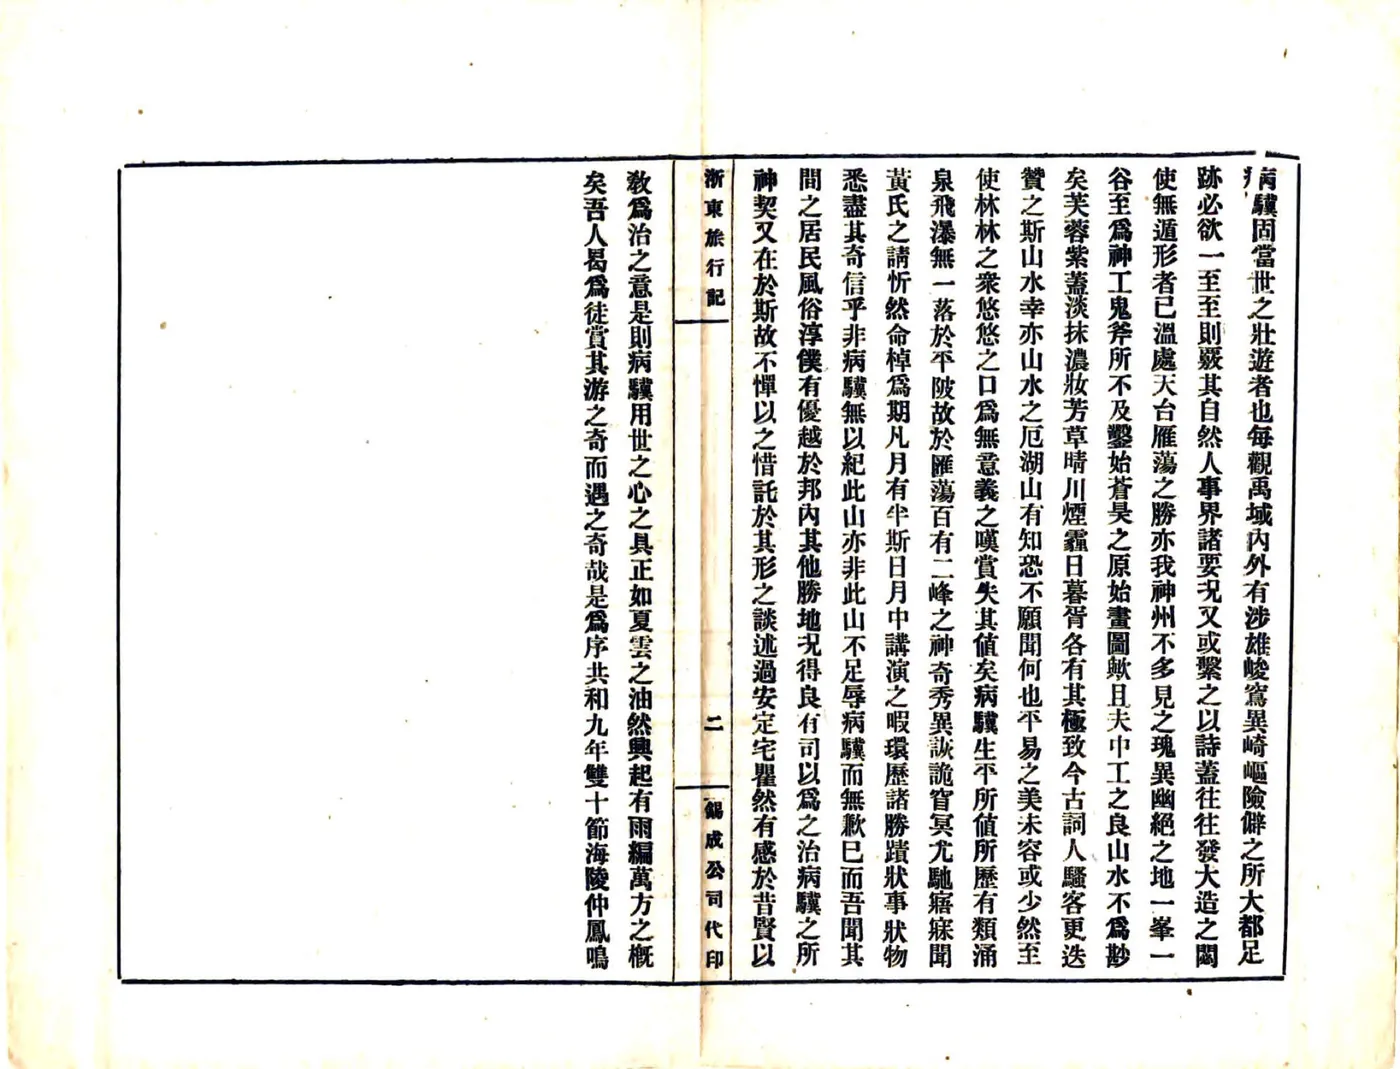 病驥固當世之壯遊者也每觀禹域內外有涉雄峻窵異崎嶇險僻之所大都足
跡必欲一至至則覈其自然人事界諸要況又或繫之以詩蓋往往發大造之閟
使無遁形者已溫處天台雁蕩之勝亦我神州不多見之瑰異幽絕之地一峯一
谷至爲神工鬼斧所不及鑿始蒼昊之原始畫圖歟且夫中工之良山水不爲尠
矣芙蓉紫蓋淡抹濃妝芳草晴川煙靄日暮胥各有其極致今古詞人騷客更迭
贊之斯山水幸亦山水之厄湖山有知恐不願聞何也平易之美未容或少然至
使林林之衆悠悠之口爲無意義之嘆賞失其値矣病驥生平所値所歷有類涌
泉飛瀑無一落於平陂故於匯蕩百有二峰之神奇秀異詼詭窅冥尤馳寤寐聞
黃氏之請忻然命棹爲期凡月有半斯日月中講演之暇環歷諸勝蹟狀事狀物
悉盡其奇信乎非病驥無以紀此山亦非此山不足辱病驥而無歉已而吾聞其
間之居民風俗淳僕有優越於邦內其他勝地況得良有司以爲之治病驥之所
神契又在於斯故不憚以之惜託於其形之談述過安定宅瞿然有感於昔賢以
浙東旅行記
二
錫成公司代印
敎爲治之意是則病驥用世之心之具正如夏雲之油然興起有雨編萬方之槪
矣吾人曷爲徒賞其游之奇而遇之奇哉是爲序共和九年雙十節海陵仲鳳鳴